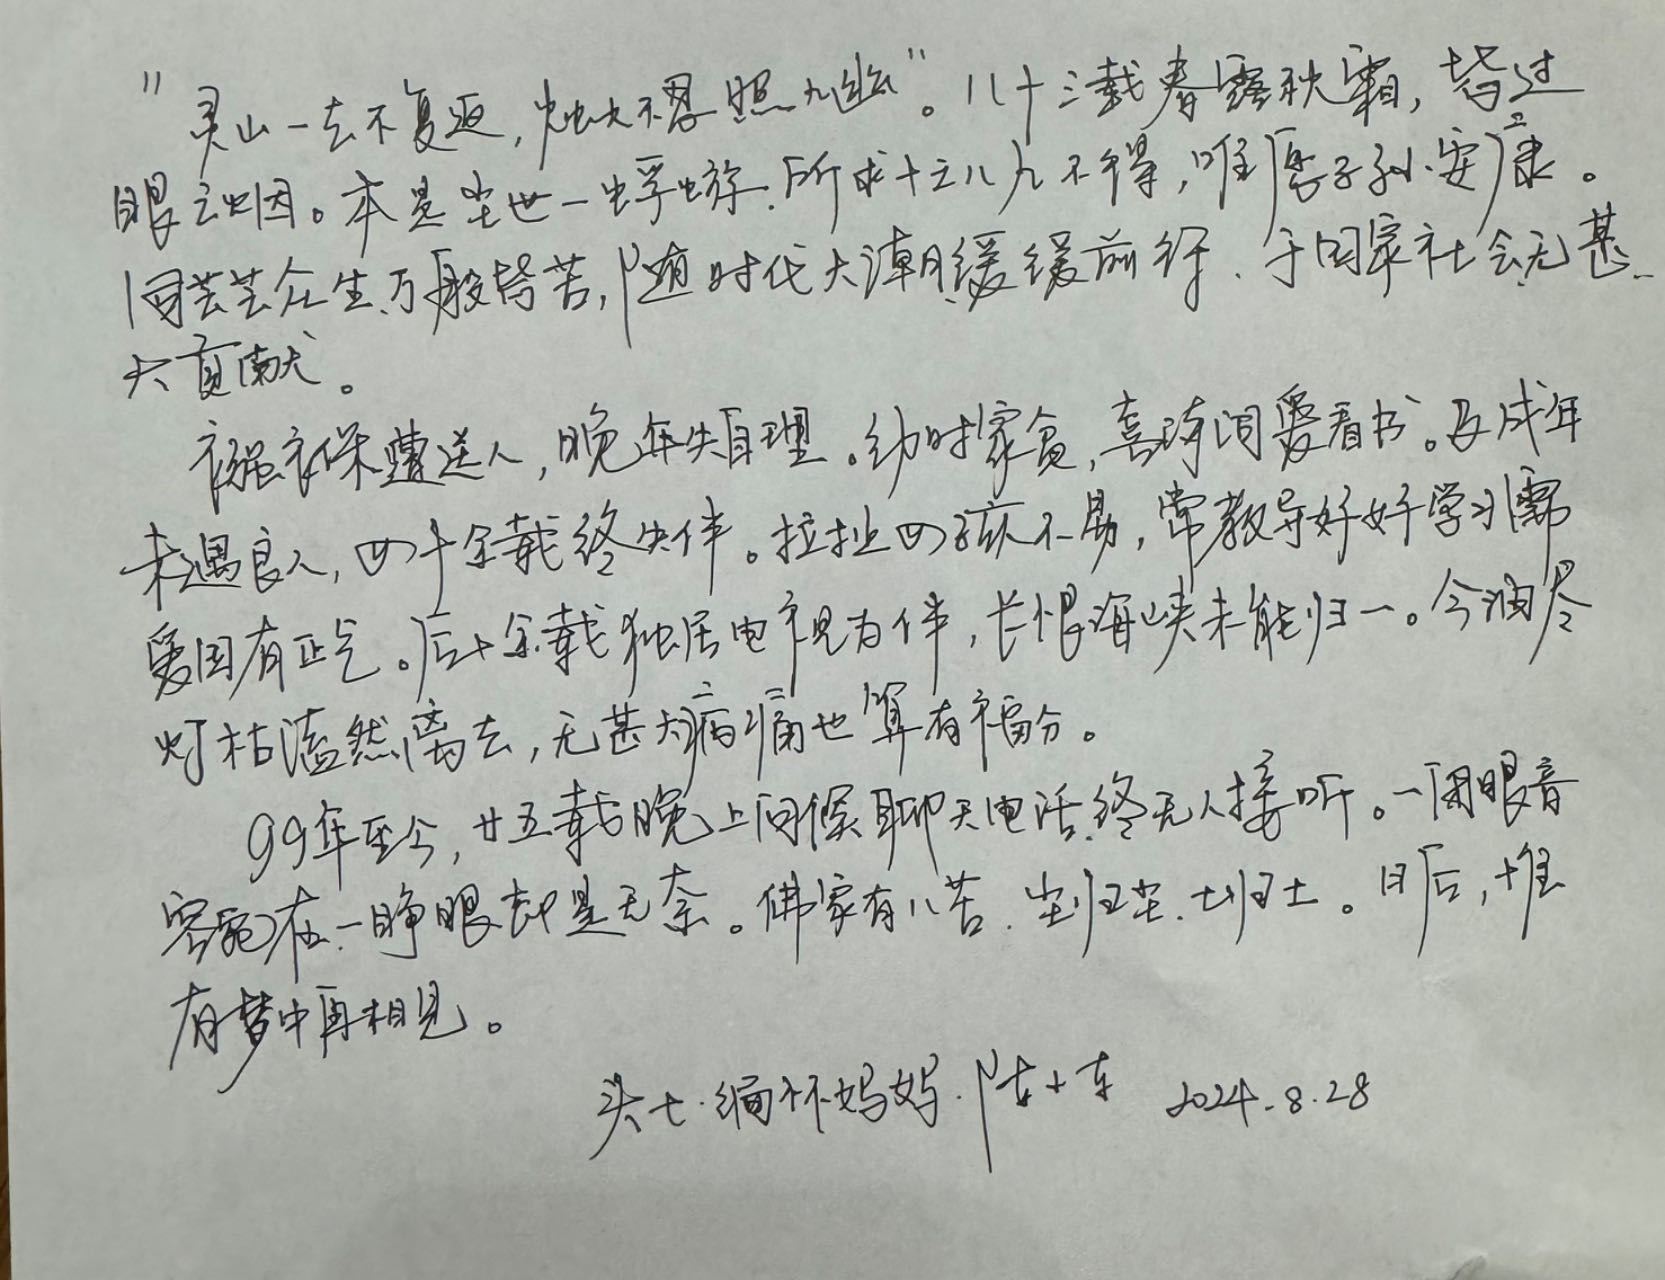 "灵山一去不复返,烛火不忍照九幽"。八十三载春露秋霜,皆过
眼云烟。本是尘世一蜉蝣.所求十之八九不得,唯愿子孙安康。
同芸芸众生万般皆苦,随时代大潮缓缓前行.于国家社会无甚
大贡献。
襁褓遭送人,晚年失自理。幼时家贫,喜诗词爱看书。及成年
未遇良人,四十余载终失伴。拉扯四孩不易,常教导好好学习需
爱国有正气。后十余载独居电视为伴,长恨海峡未能归一。今油尽
灯枯溘然离去,无甚大病痛也算有福分。
99年至今,廿五载晚上问候聊天电话终无人接听。一闭眼音
容宛在一睁眼却是无奈。佛家有八苦.尘归尘.土归土。日后,惟
有梦中再相见。
头七.缅怀妈妈. 陈小东 2024.8.28